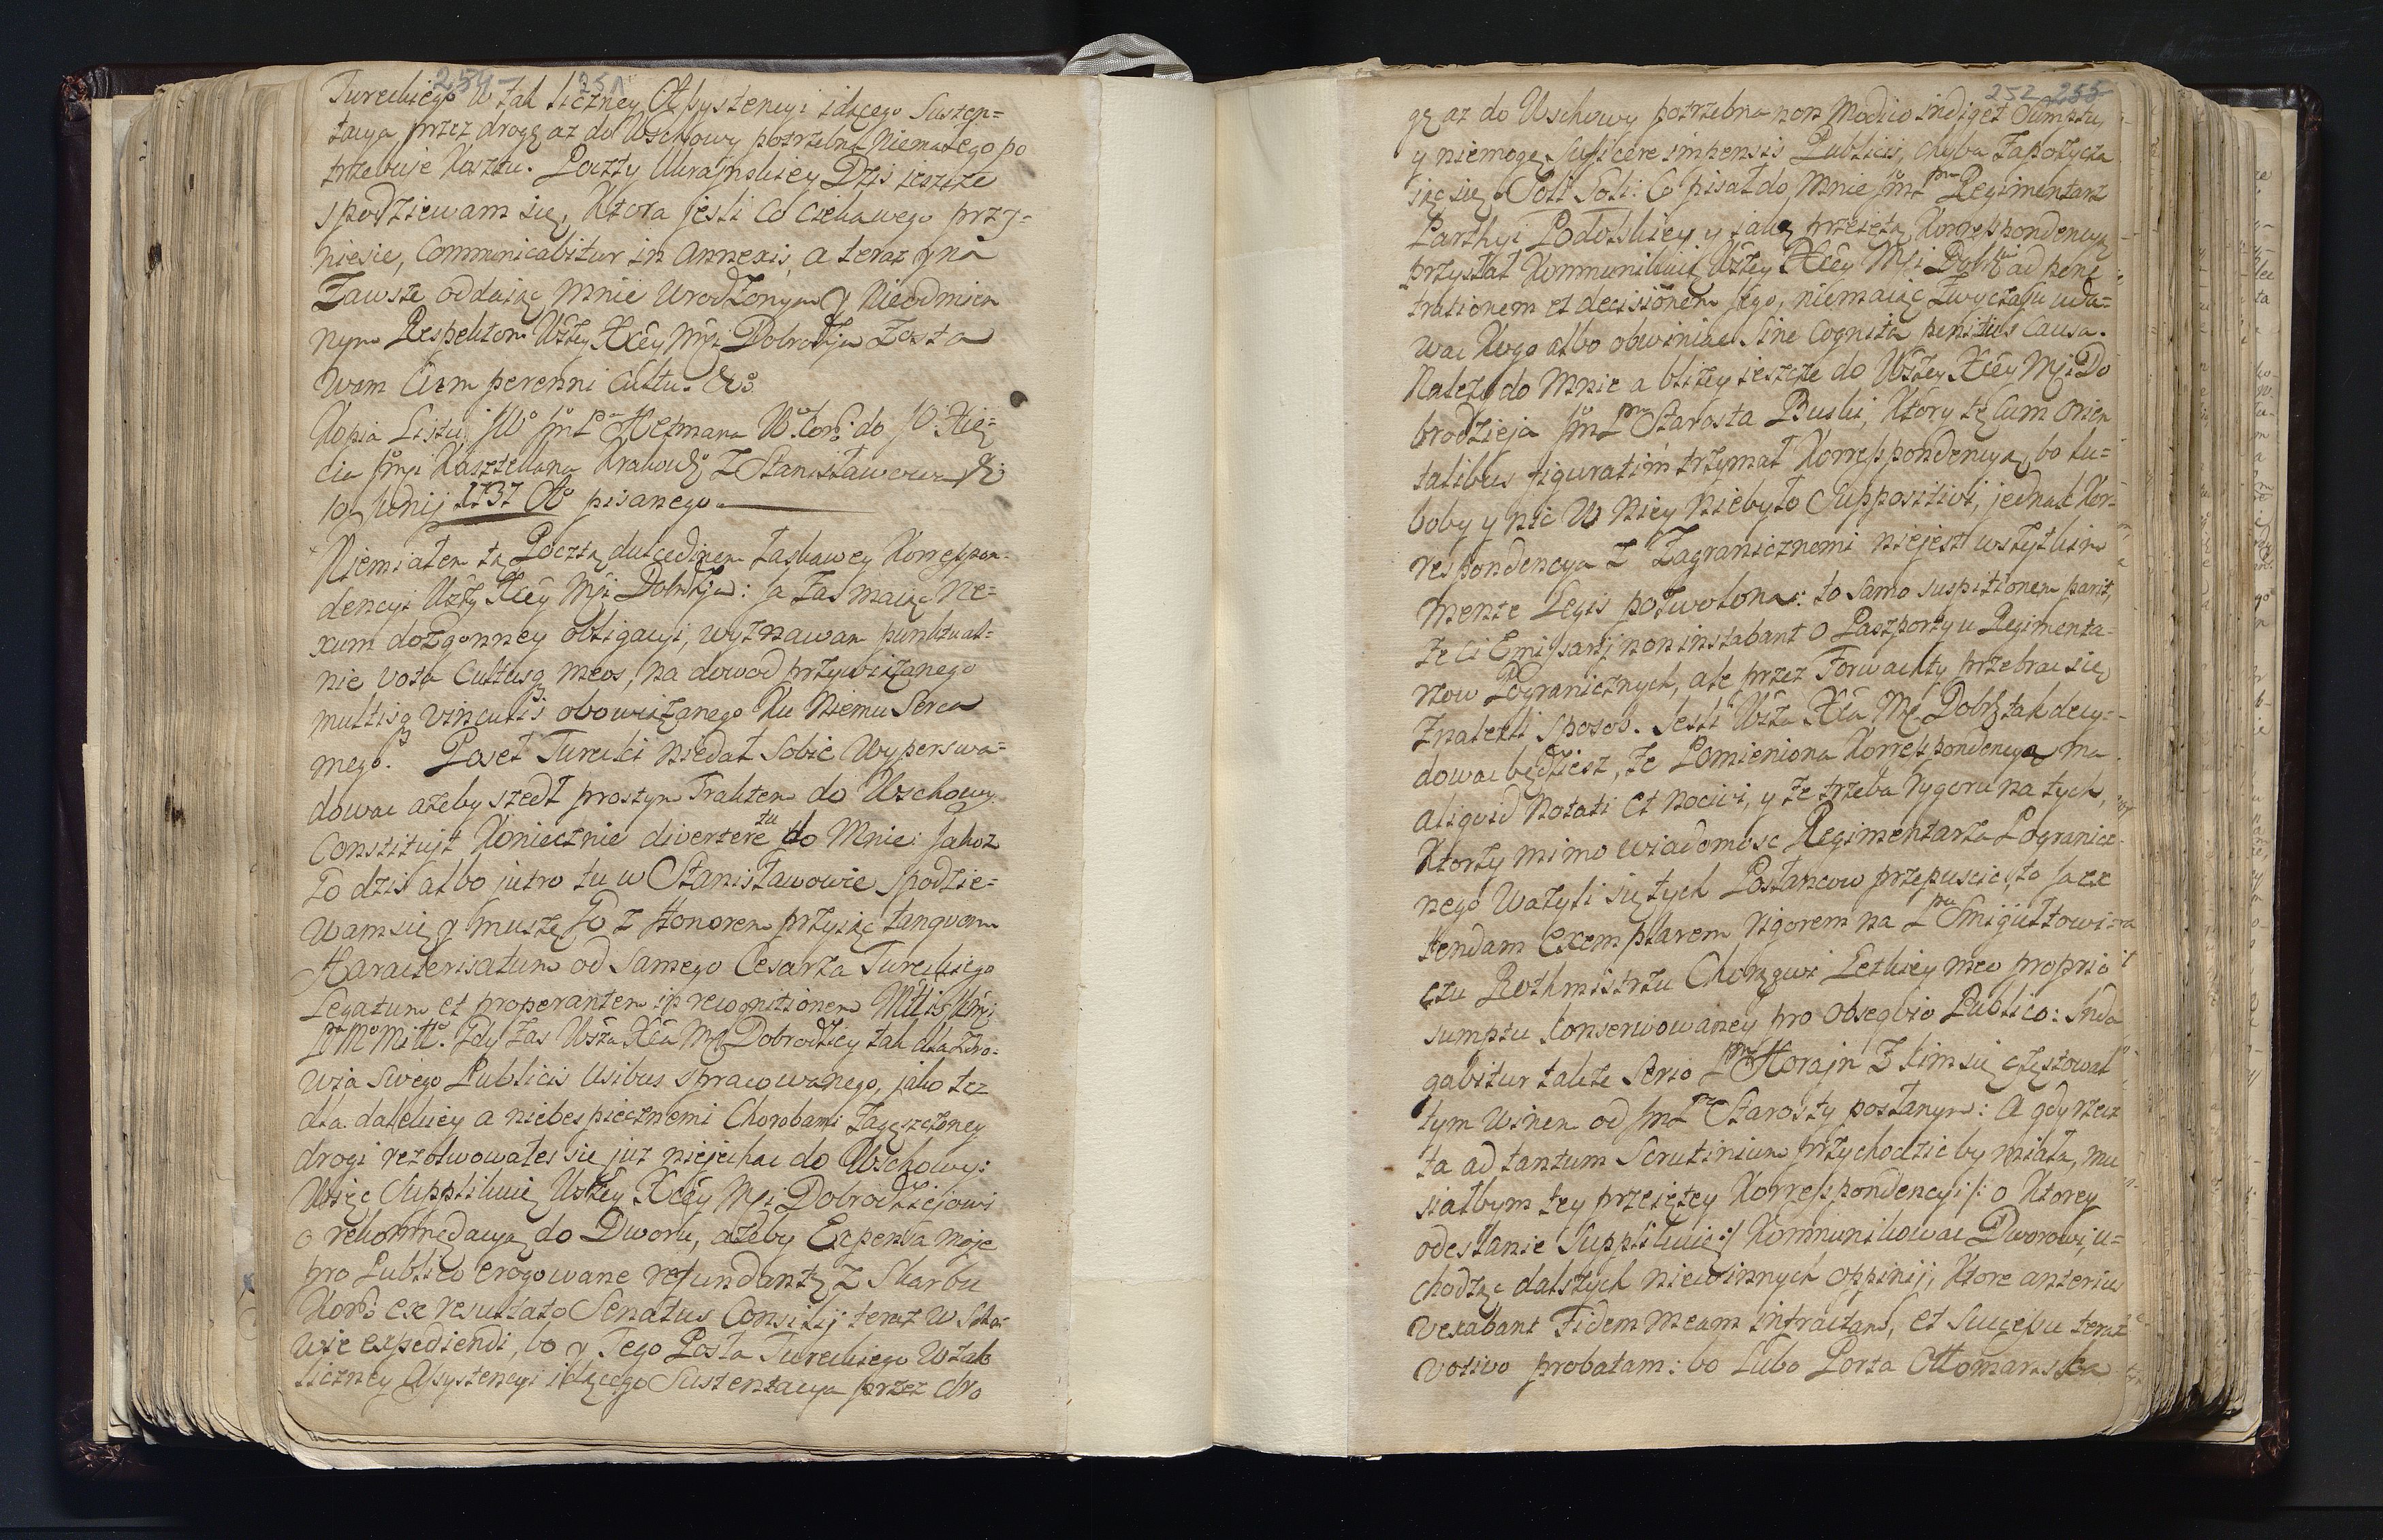 254 251
Tureckiego w tak liczney Assystencyi idącego Susten=
tacya przez drogę az do Wschowy potrzebna Niemałego po
trzebuje Kosztu. Poczty Ukrajnskiey Dzis ieszcze
spodziewam się, Ktora jesli co ciekawego przy=
niesie, Communicabitur in Annexis, a teraz y na
Zawsze oddaiąc mnie Urodzonym y Nieodmien
nym Respektom Wszey Xcey Mci Dobrodzja Zosta
wam Cum perenni Cultu. &c.
Kopia Listu JWo JmP Hetmana W. Kor. do JO. Xię=
cia Jmci Kasztellana Krakowo Z Stanisławowa D
10 Junij 1737 Ao pisanego.
Niemiałem tą Pocztą dulcedinem łaskawey Korrespon=
dencyi Wszey Xcey Mci Dobrdzja: Ja Zas maiąc Ne=
xum dozgonney obligacyi, wyznawam punktual=
nie vota Cultusq meos, na dowod przywiązanego
multisq vinculis obowiązanego Ku Niemu Serca
mego. Poseł Turecki niedał sobie Wyperswa=
dowac azeby szedł prostym Traktem do Wschowy
Constituit Koniecznie divertere tu do Mnie: Jakoz
Go dzis albo jutro tu w Stanisławowie spodzie=
wam się y muszę Go z Honorem przyiąć tanquam
Haracterisatum od Samego Cesarza Tureckiego
Legatum et properantem in recognitionem Mttis Krolej
Pa Mo Mtto. Gdy Zas Wsza Xca Mc Dobrodziey tak dla Zdro=
wia Swego Publicis Usibus spracowanego, jako tez
dla dalekiey a niebespiecznemi Chorobami zagęszczoney
drogi rezolwowałes się juz niejechac do Wschowy:
Więc Supplikuię Wszey Xcey Mci Dobrodziejowi
o rekommędacyą do Dworu, azeby Expensa moje
pro Publico erogowane refundantur Z Skarbu
Kor. ex resultato Senatus Consilij teraz w Wscho=
wie expediendi, bo y Tego Posła Tureckiego w tak
liczney Asystencyi idącego Sustentacya przez dro
252 255
gę az do Wschowy potrzebna non modico indiget Sumptu
y niemogę Sufficere impensis Publicis, chyba Zapozycza
iąc się Soli Soli: Co pisał do Mnie JmP Regimentarz
Parthyi Podolskiey y jaką przeiętą Korrespondencyą
przysłał Kommunikuię Wszey Xcey Mci Dobro ad pene
trationem et decisionem Jego, niemaiąc Zwyczaju uda=
wac Kogo albo obwiniac Sine Cognita penitus Causa.
Nalezy do Mnie a blizey ieszcze do Wszey Xcey Mci Do
brodzieja JmP Starosta Buski, Ktory tę Cum Orien
talibus figuratim trzymał Korrespondencyą, bo lu=
boby y nic w Niey niebyło Suppositivi, jednak Kor=
respondencya Z Zagranicznemi niejest wszytkim
mente Legis pozwolona: to samo suspitionem parit,
ze ci Emissarij non instabant o Paszporty u Regimenta=
rzow Pogranicznych, ale przez Forwachty przebrac się
Znalezli sposob. Jesli Wsza Xca Mc Dobrz tak decy=
dowac będziesz, ze Pomieniona Korrespondencya ma
aliquid Notati et nocivi, y ze trzeba rygoru na tych,
Ktorzy mimo wiadomosc Regimentarza Pogranicz=
nego Wazyli się tych Posłancow przepuscic, to Ja ex
tendam Exemplarem rigorem na P Smigultowi
czu Rothmistrzu Chorągwi Letkiey meo proprio
sumptu Konserwowaney pro obsequio Publico: Inda
gabitur takze Serio P Horain Z kim się częstował
tym Winem od JmP Starosty posłanym: A gdy rzecz
ta ad tantum Scrutinium przychodzic by miała, mu
siałbym tey przeiętey Korrespondencyi /: o Ktorey
odesłanie Supplikuię :/ Kommunikowac Dworowi, u=
chodząc dalszych niewinnych oppinij, Ktore anterius
vexabant Fidem Meam intractam, et Successu teraz
votivo probatam: bo Lubo Porta Ottomanska